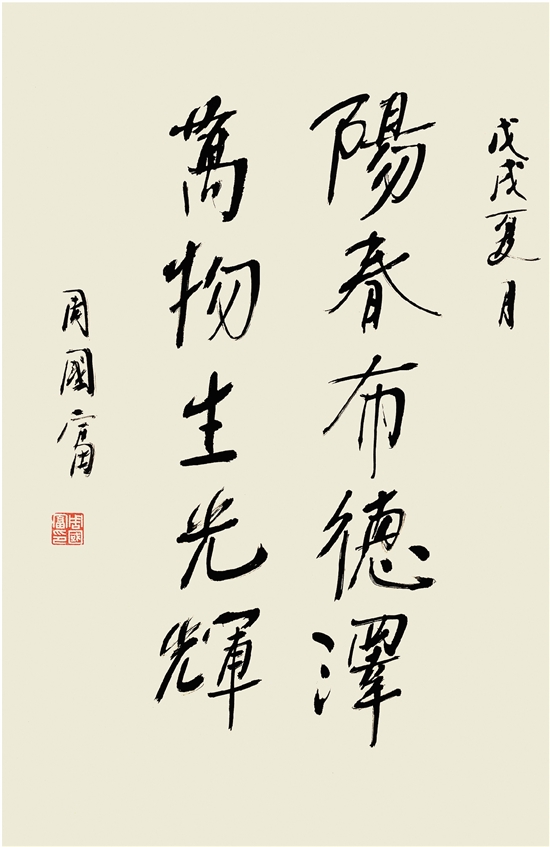 戊戌夏月
陽春布德澤
萬物生光輝
周國富
周國富印